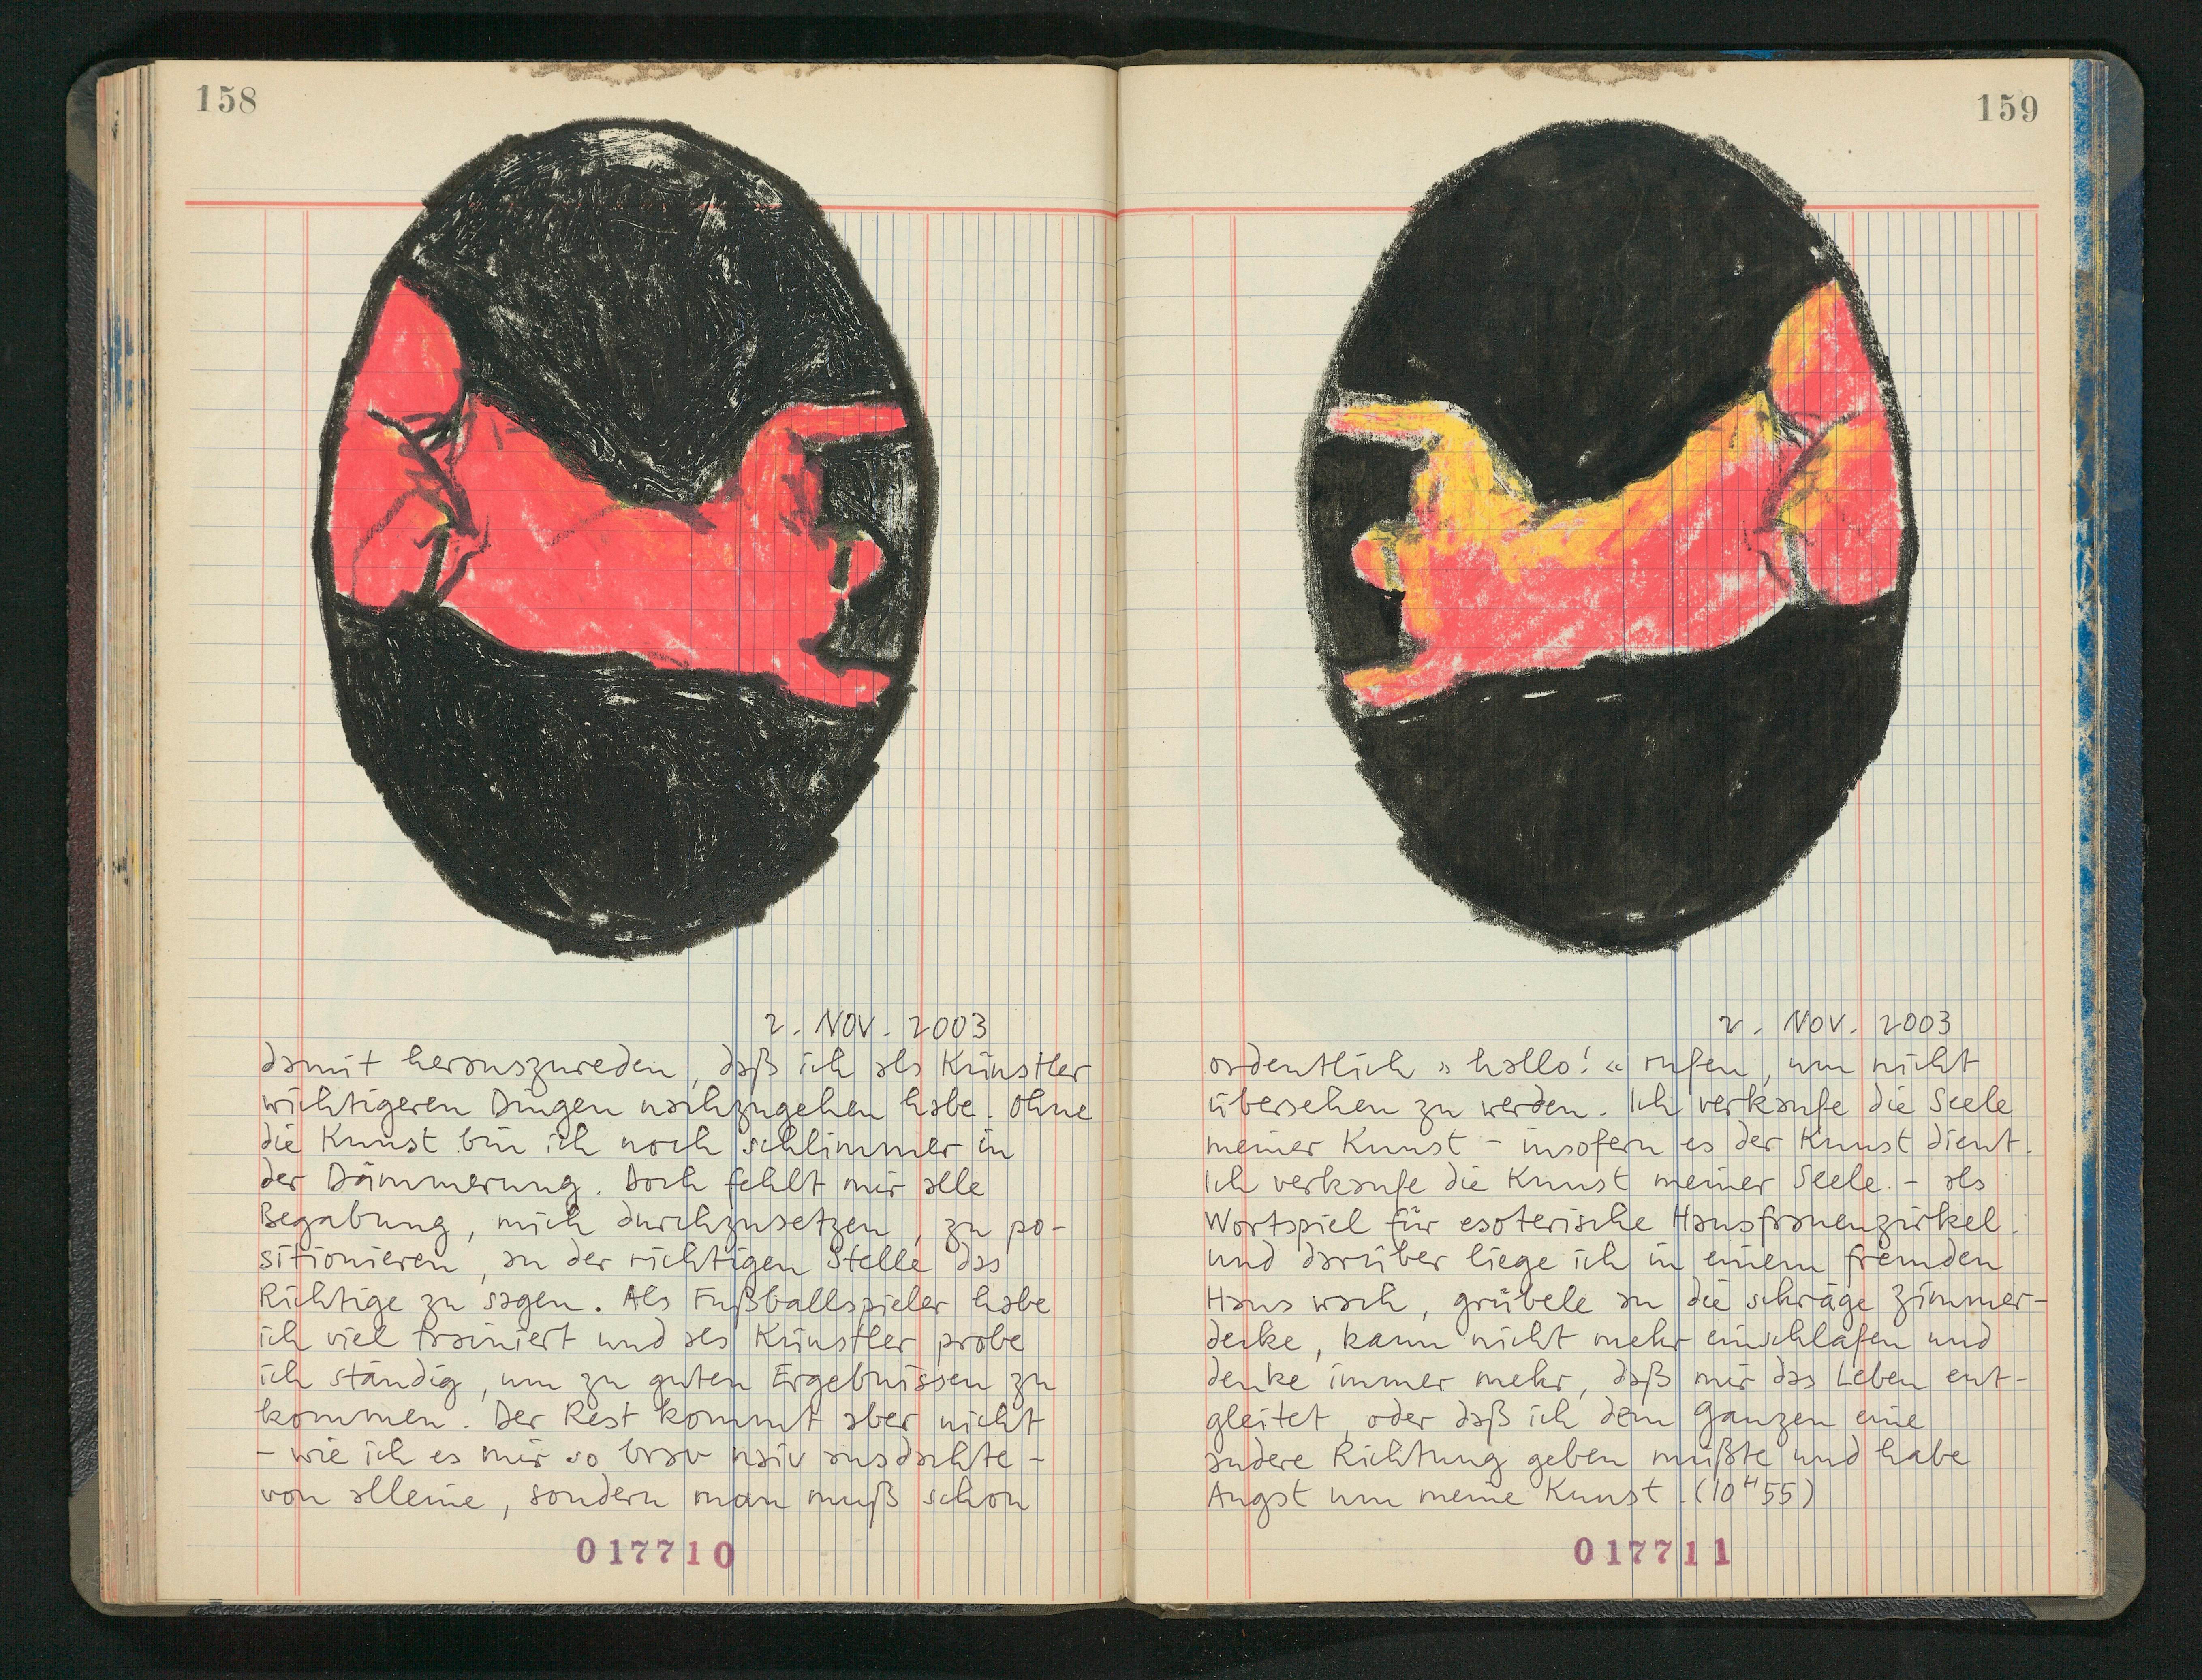 158
2. NOV. 2003
damit herauszureden, daß ich als Künstler
wichtigeren Dingen nachzugehen habe. Ohne
die Kunst bin ich noch schlimmer in
der Dämmerung. Doch fehlt mir alle
Begabung, mich durchzusetzen, zu po-
sitionieren, an der richtigen Stelle das
Richtige zu sagen. Als Fußballspieler habe
ich viel trainiert und als Künstler probe
ich ständig, um zu guten Ergebnissen zu
kommen. Der Rest kommt aber nicht
- wie ich es mir so brav naiv ausdachte -
von alleine, sondern man muß schon
017710
159
2. NOV. 2003
ordentlich »hallo!« rufen, um nicht
übersehen zu werden. Ich verkaufe die Seele
meiner Kunst - insofern es der Kunst dient.
Ich verkaufe die Kunst meiner Seele. - als
Wortspiel für esoterische Hausfrauenzirkel.
und darüber liege ich in einem fremden
Haus wach, grübele an die schräge Zimmer-
decke, kann nicht mehr einschlafen und
denke immer mehr, daß mir das Leben ent-
gleitet, oder daß ich dem ganzen eine
andere Richtung geben müßte und habe
Angst um meine Kunst. (10ᴴ55)
017711